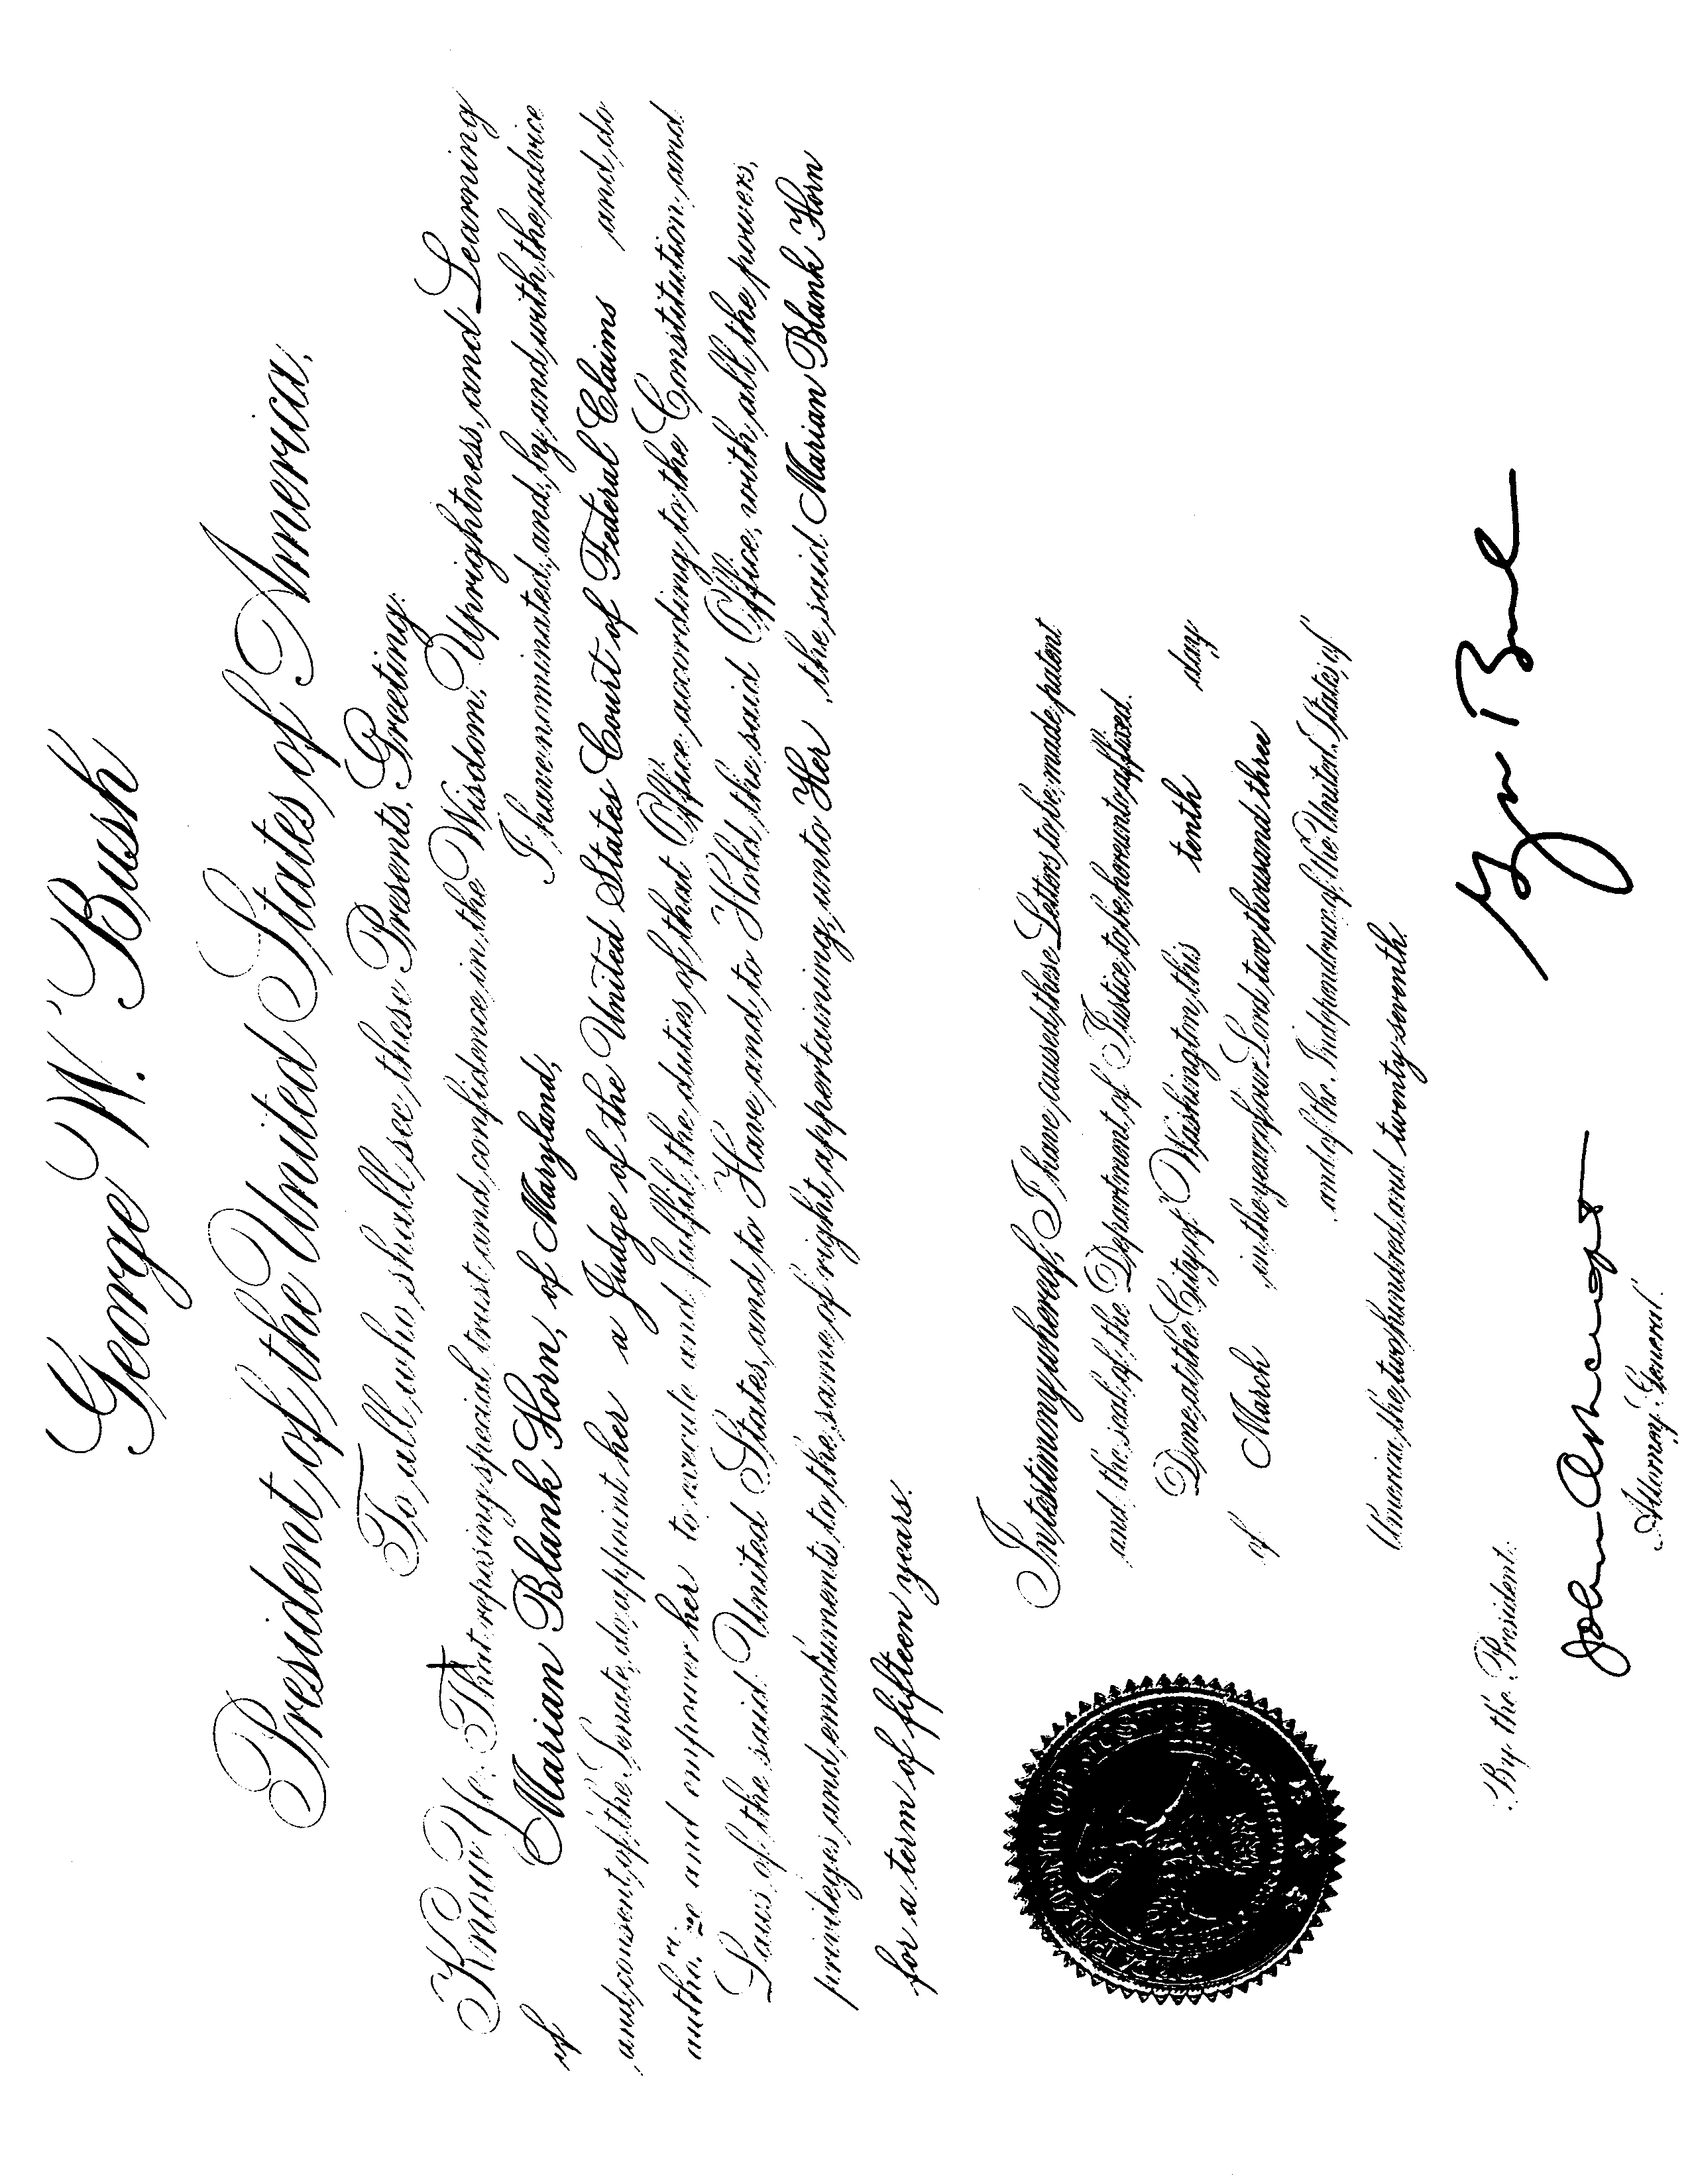 George W. Bush
President of the United States of America,
To all who shall see these Presents, Greeting:
Know Ye: That reposing special trust and confidence in the Wisdom, Uprightness, and Learning
of Marian Blank Horn, of Maryland, I have nominated, and, by and with the advice
and consent of the Senate, do appoint her a Judge of the United States Court of Federal Claims and do
authorize and empower her to execute and fulfil the duties of that Office according to the Constitution and
Laws of the said United States, and to Have and to Hold the said Office, with all the powers,
privileges and emoluments to the same of right appertaining, unto Her, the said Marian Blank Horn
for a term of fifteen years.
In testimony whereof, I have caused these Letters to be made patent
and the seal of the Department of Justice to be hereunto affixed.
Done at the City of Washington this tenth day
of March in the year of our Lord two thousand three
and of the Independence of the United States of
America the two hundred and twenty seventh.
By the President:
George Bush
John Ashcroft
Attorney General.